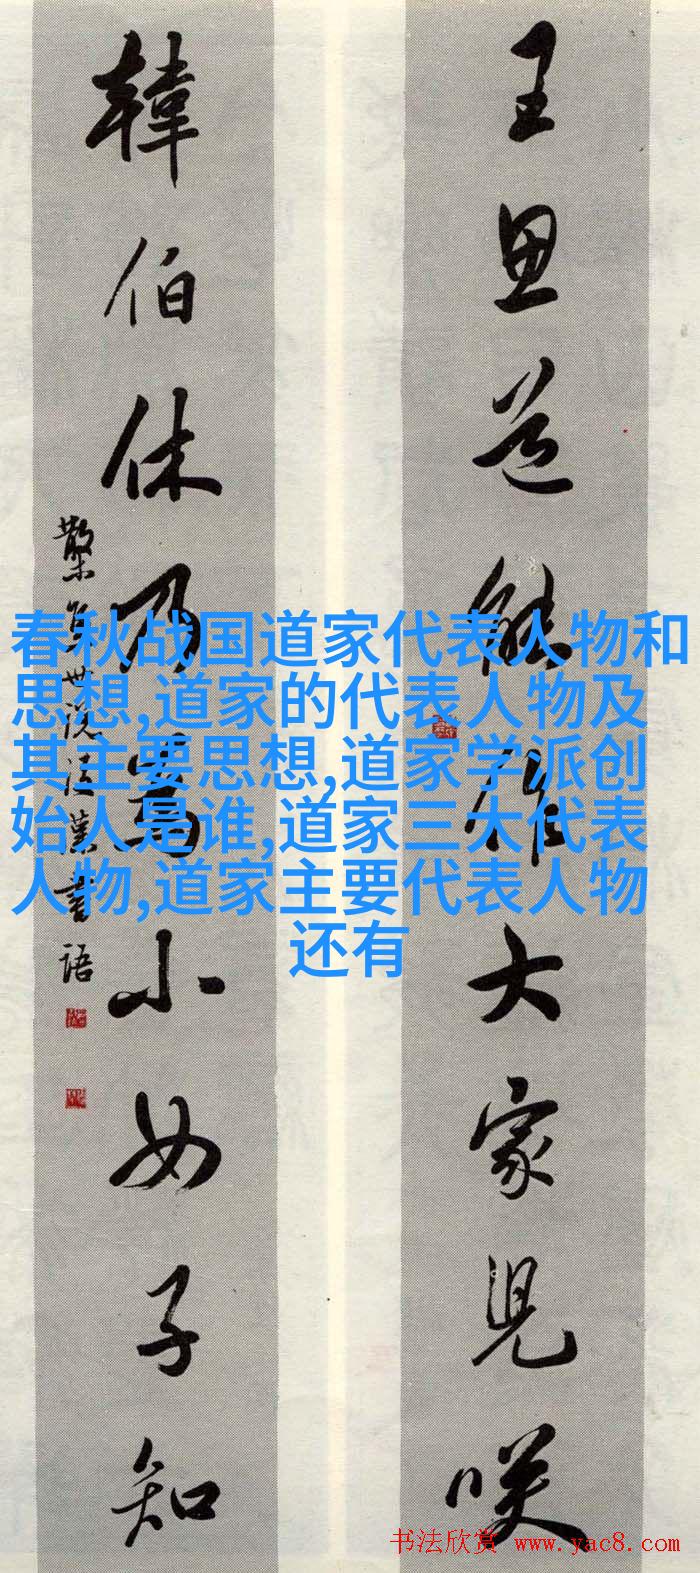 王思道能作大家兒咲
韓伯休乃小女子知
集世說後漢書語
春秋战国道家代表人物和
思想,道家的代表人物及
其主要思想,道家学派创
始人是谁,道家三大代表
人物,道家主要代表人物
还有
书法欣赏 www.yac8.com